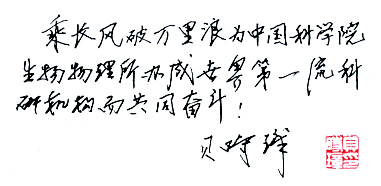 乘长风破万里浪为中国科学院
生物物理所办成世界第一流科
研机构而共同奋斗！
贝时璋